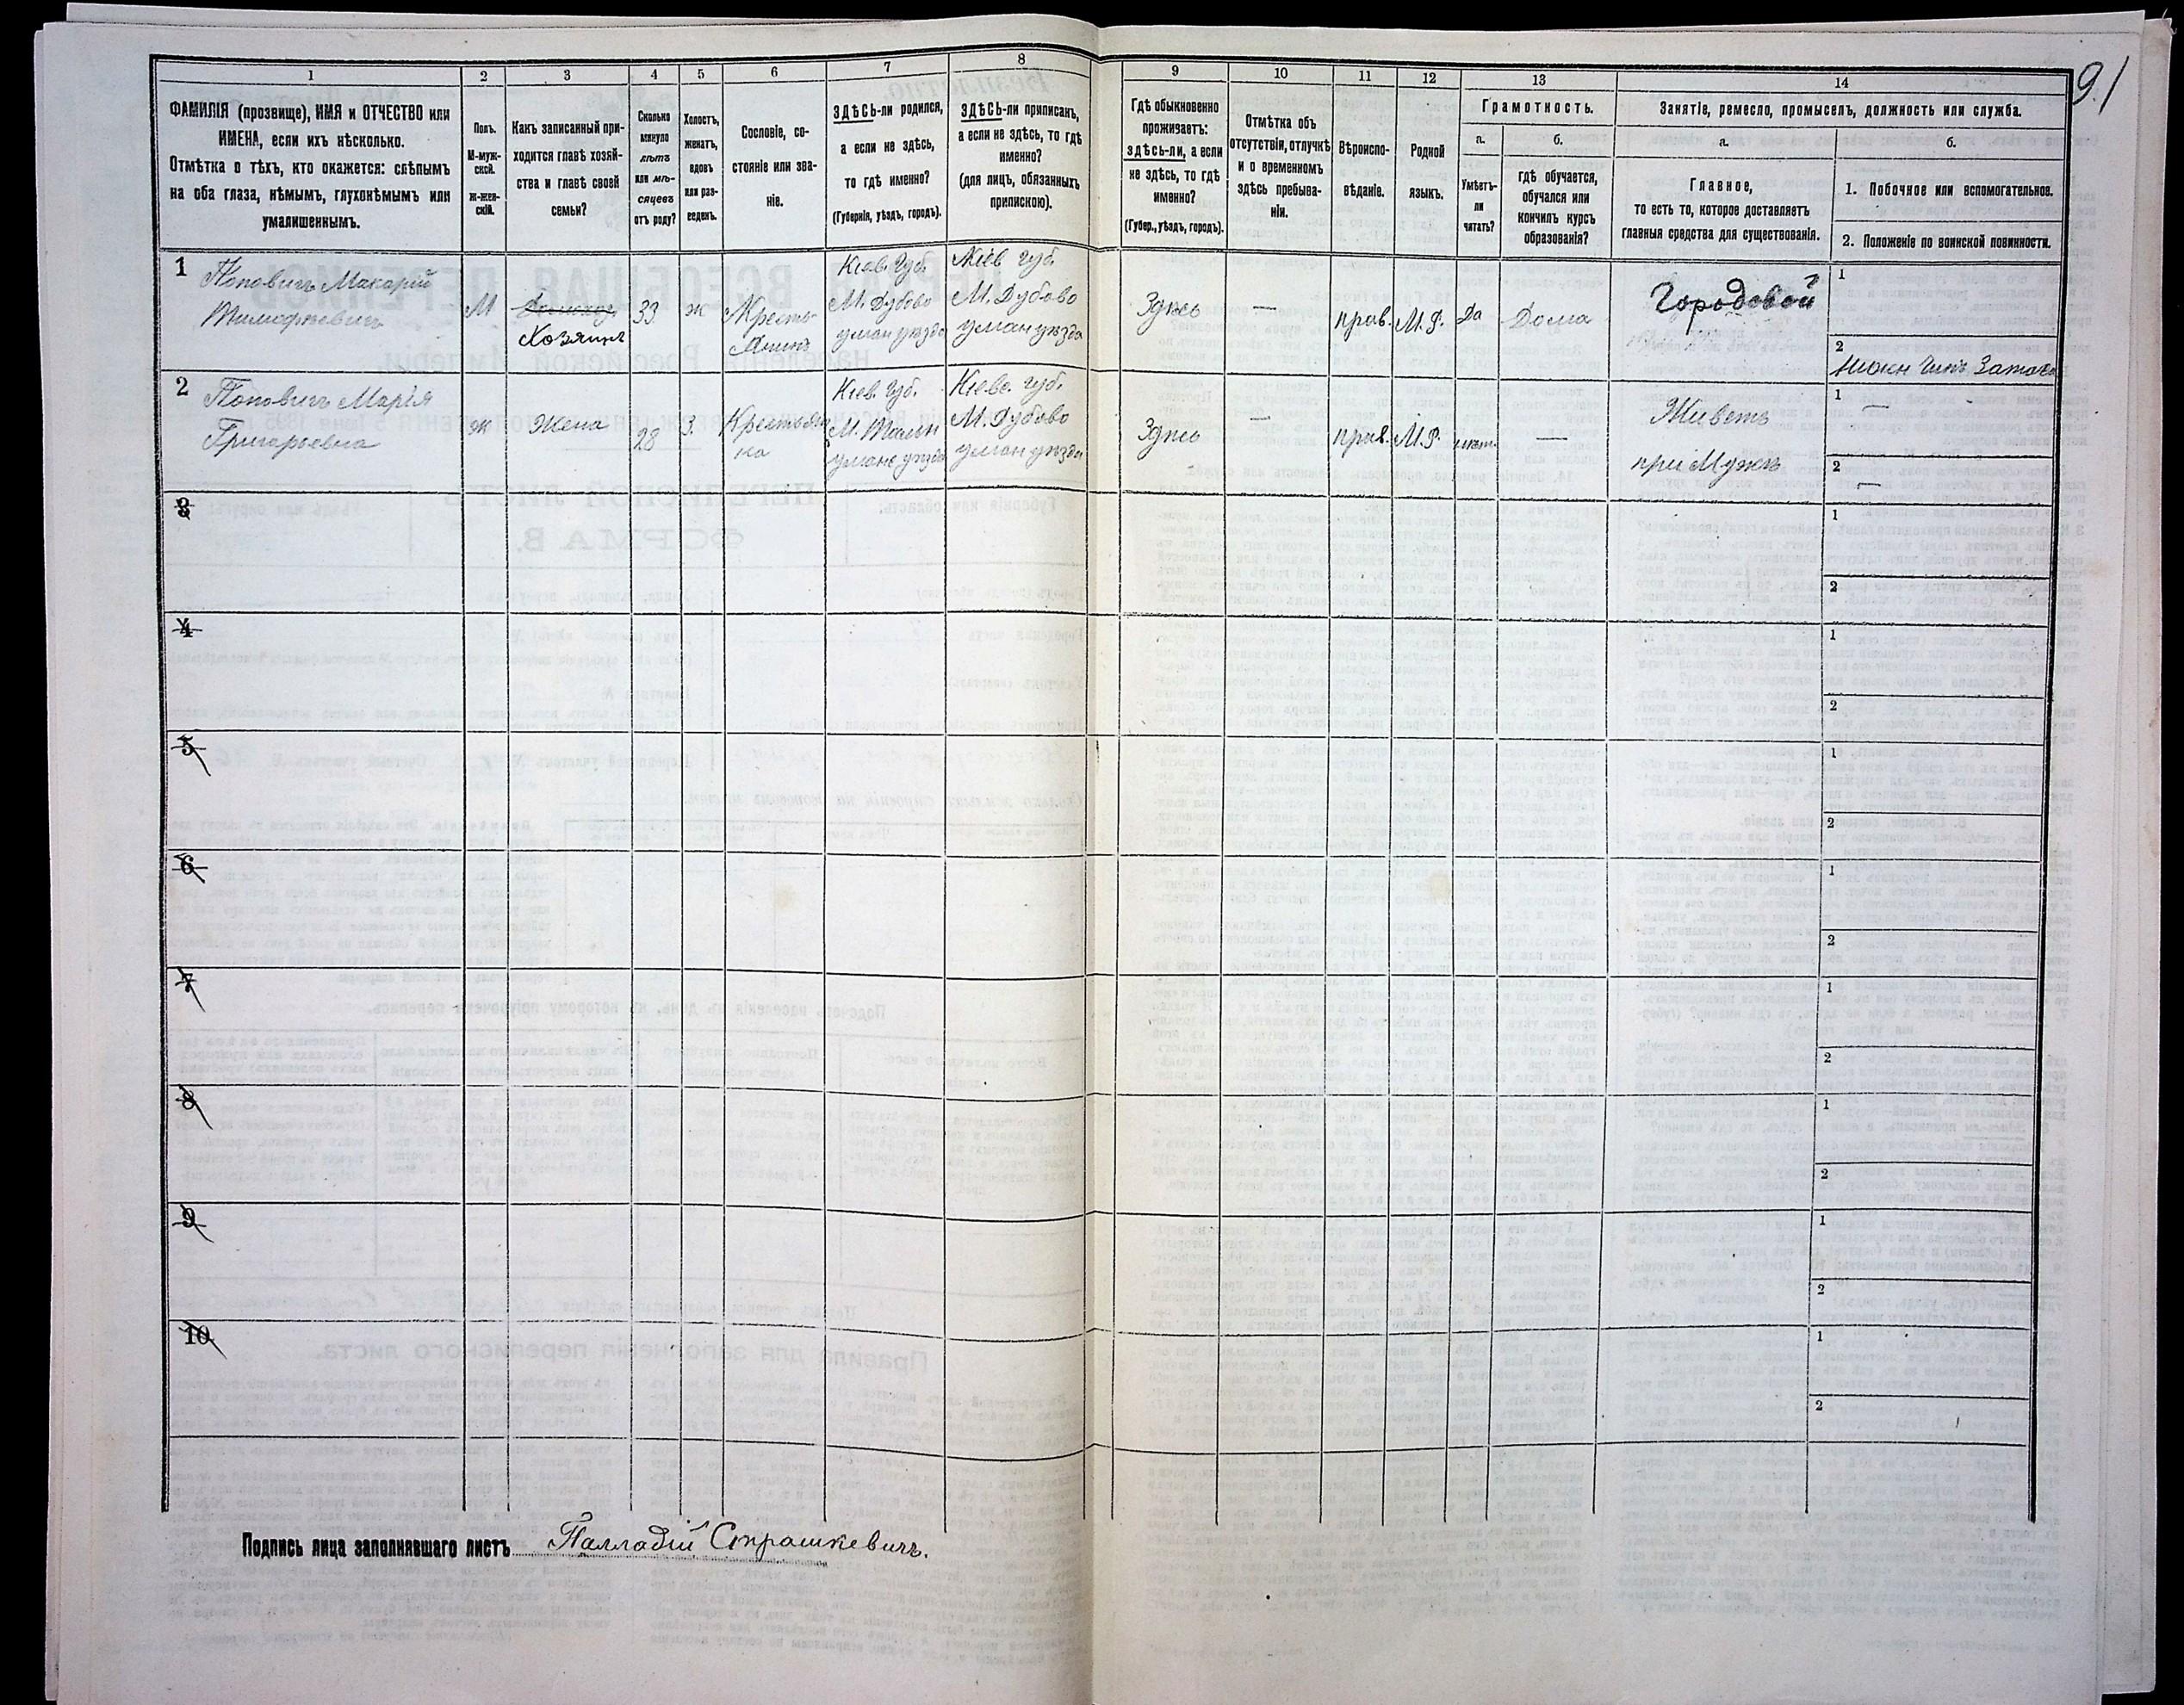 91
1 2 3 4 5 6 7 8 9 10 11 12 13 14
ФАМИЛІЯ (прозвище), ИМЯ и ОТЧЕСТВО или
ИМЕНА, если ихъ нѣсколько.
Отмѣтка о тѣхъ, кто окажется: слѣпымъ
на оба глаза, нѣмымъ, глухонѣмымъ или
умалишеннымъ.
Полъ.
М-муж-
ской.
Ж-жен-
скій.
Какъ записанный при-
ходится главѣ хозяй-
ства и главѣ своей
семьи?
Сколько
минуло
лѣтъ
или мѣ-
сяцевъ
отъ роду?
Холостъ,
женатъ,
вдовъ
или раз-
веденъ.
Сословіе, со-
стояніе или зва-
ніе.
ЗДѢСЬ-ли родился,
а если не здѣсь,
то гдѣ именно?
(Губернія, уѣздъ, городъ).
ЗДѢСЬ-ли приписанъ,
а если не здѣсь, то гдѣ
именно?
(для лицъ, обязанныхъ
припискою).
Гдѣ обыкновенно
проживаетъ:
здѣсь-ли, а если
не здѣсь, то гдѣ
именно?
(Губер., уѣздъ, городъ).
Отмѣтка объ
отсутствіи, отлучкѣ
и о временномъ
здѣсь пребыва-
ніи.
Вѣроиспо-
вѣданіе.
Родной
языкъ.
Грамотность.
а.
Умѣетъ-
ли
читать?
б.
гдѣ обучается,
обучался или
кончилъ курсъ
образованія?
Занятіе, ремесло, промыселъ, должность или служба.
а.
Главное,
то есть то, которое доставляетъ
главныя средства для существованія.
б.
1. Побочное или вспомогательное.
2. Положеніе по воинской повинности.
1
Поповичъ Макарій
Тимофѣевичъ
М
Хозяинъ
33
ж
Кресть-
янинъ
Кіев. Губ.
М. Дубово
уман уѣзда
Кіев Губ.
М. Дубово
уман уѣзда
Здѣсь
—
прав.
М. Р.
Да
Дома
Городовой
1
2
2
Поповичъ Марія
Григорьевна
Ж
Жена
28
З.
Крестьян
ка
Кіев. Губ.
уманс уѣзда
Кіевс. Губ.
М. Дубово
уман уѣзда
Здѣсь
—
прав.
М. Р.
—
Живетъ
при Мужѣ
1
—
2
—
3
1
2
4
1
2
5
1
2
6
1
2
7
1
2
8
1
2
9
1
2
10
1
2
Подпись лица заполнявшаго листъ Палладій Страшкевичъ.